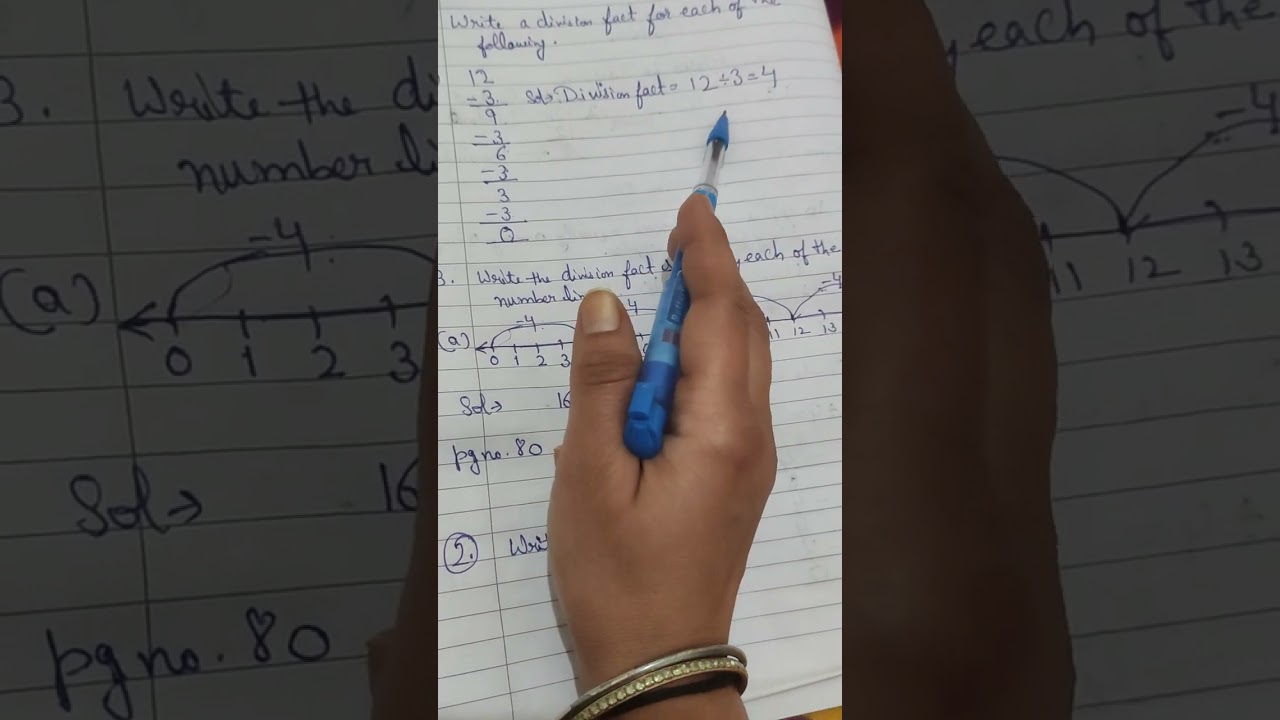 Write a division fact for each of the
following.
12
-3 Sol→ Division fact = 12÷3=4
9
-3
6
-3
3
-3
0
3. Write the division fact each of the
number
(a) -4 -4 -4
0 1 2 3 11 12 13
Sol→ 16
pg no. 80
2.